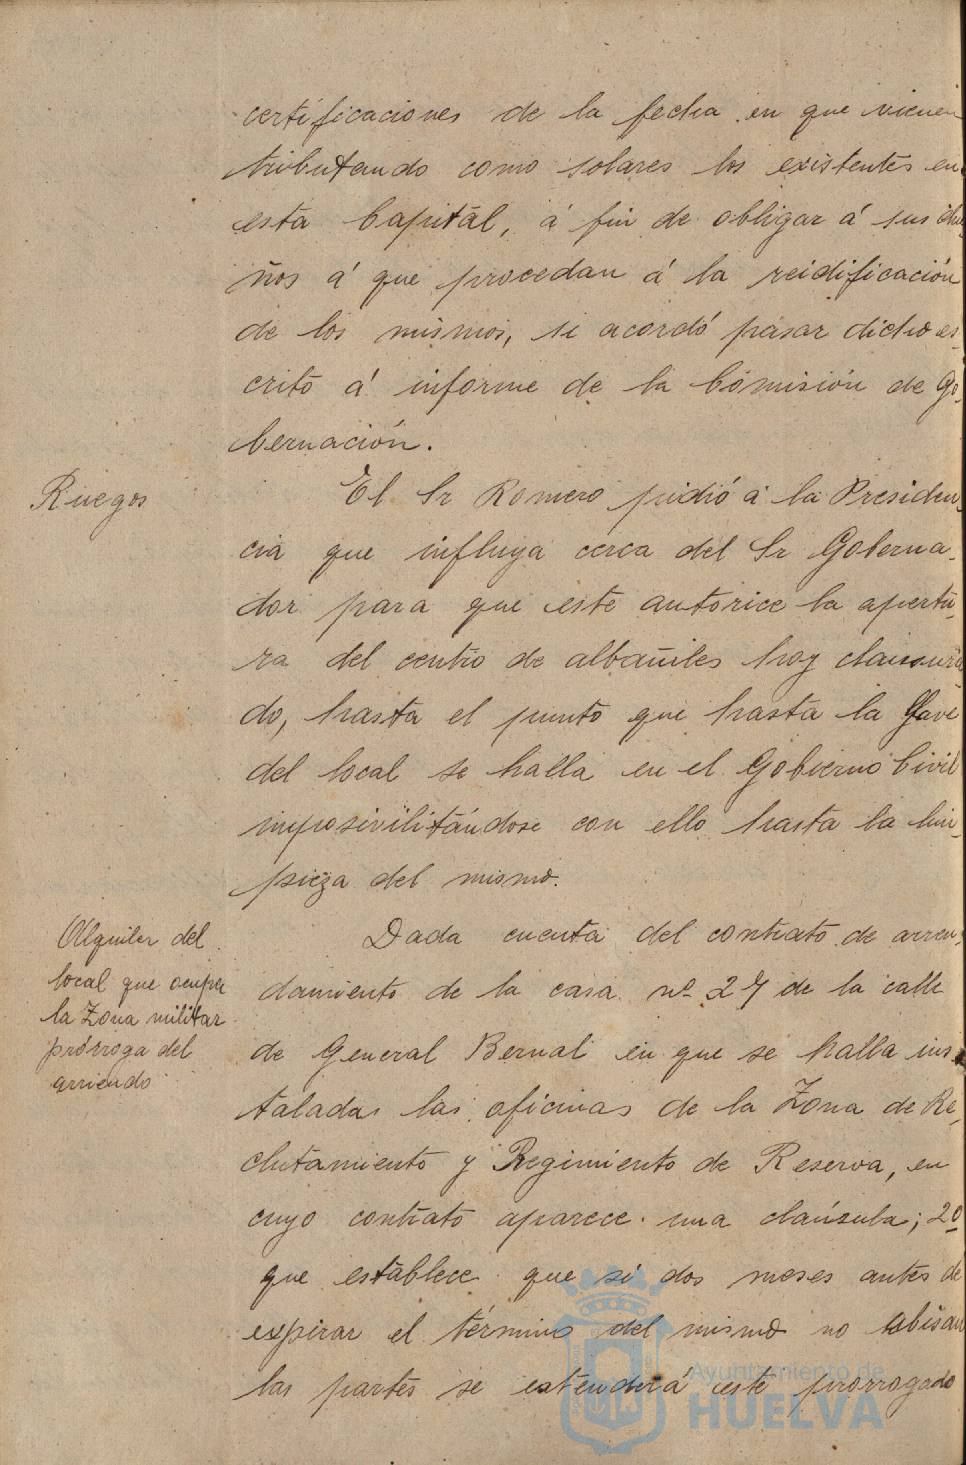 certificaciones de la fecha en que vienen
tributando como solares los existentes en
esta Capital, á fin de obligar á sus due-
ños á que procedan á la reidificación
de los mismos, se acordó pasar dicho es-
crito á informe de la Comisión de Go-
bernación.
Ruegos
El Sr Romero pidió á la Presiden-
cia que influya cerca del Sr Goberna-
dor para que este autorice la apertu-
ra del centro de albañiles hoy clausura
do, hasta el punto que hasta la llave
del local se halla en el Gobierno Civil
imposivilitándose con ello hasta la lim-
pieza del mismo.
Alquiler del
local que ocupa
la Zona militar
prórroga del
arriendo
Dada cuenta del contrato de arren-
damiento de la casa nº 27 de la calle
de General Bernal en que se halla ins-
taladas las oficinas de la Zona de Re-
clutamiento y Regimiento de Reserva, en
cuyo contrato aparece una claúsula; 2º
que establece que si dos meses antes de
expirar el término del mismo no abisan
las partes se extenderá este prorrogado
Ayuntamiento de
HUELVA